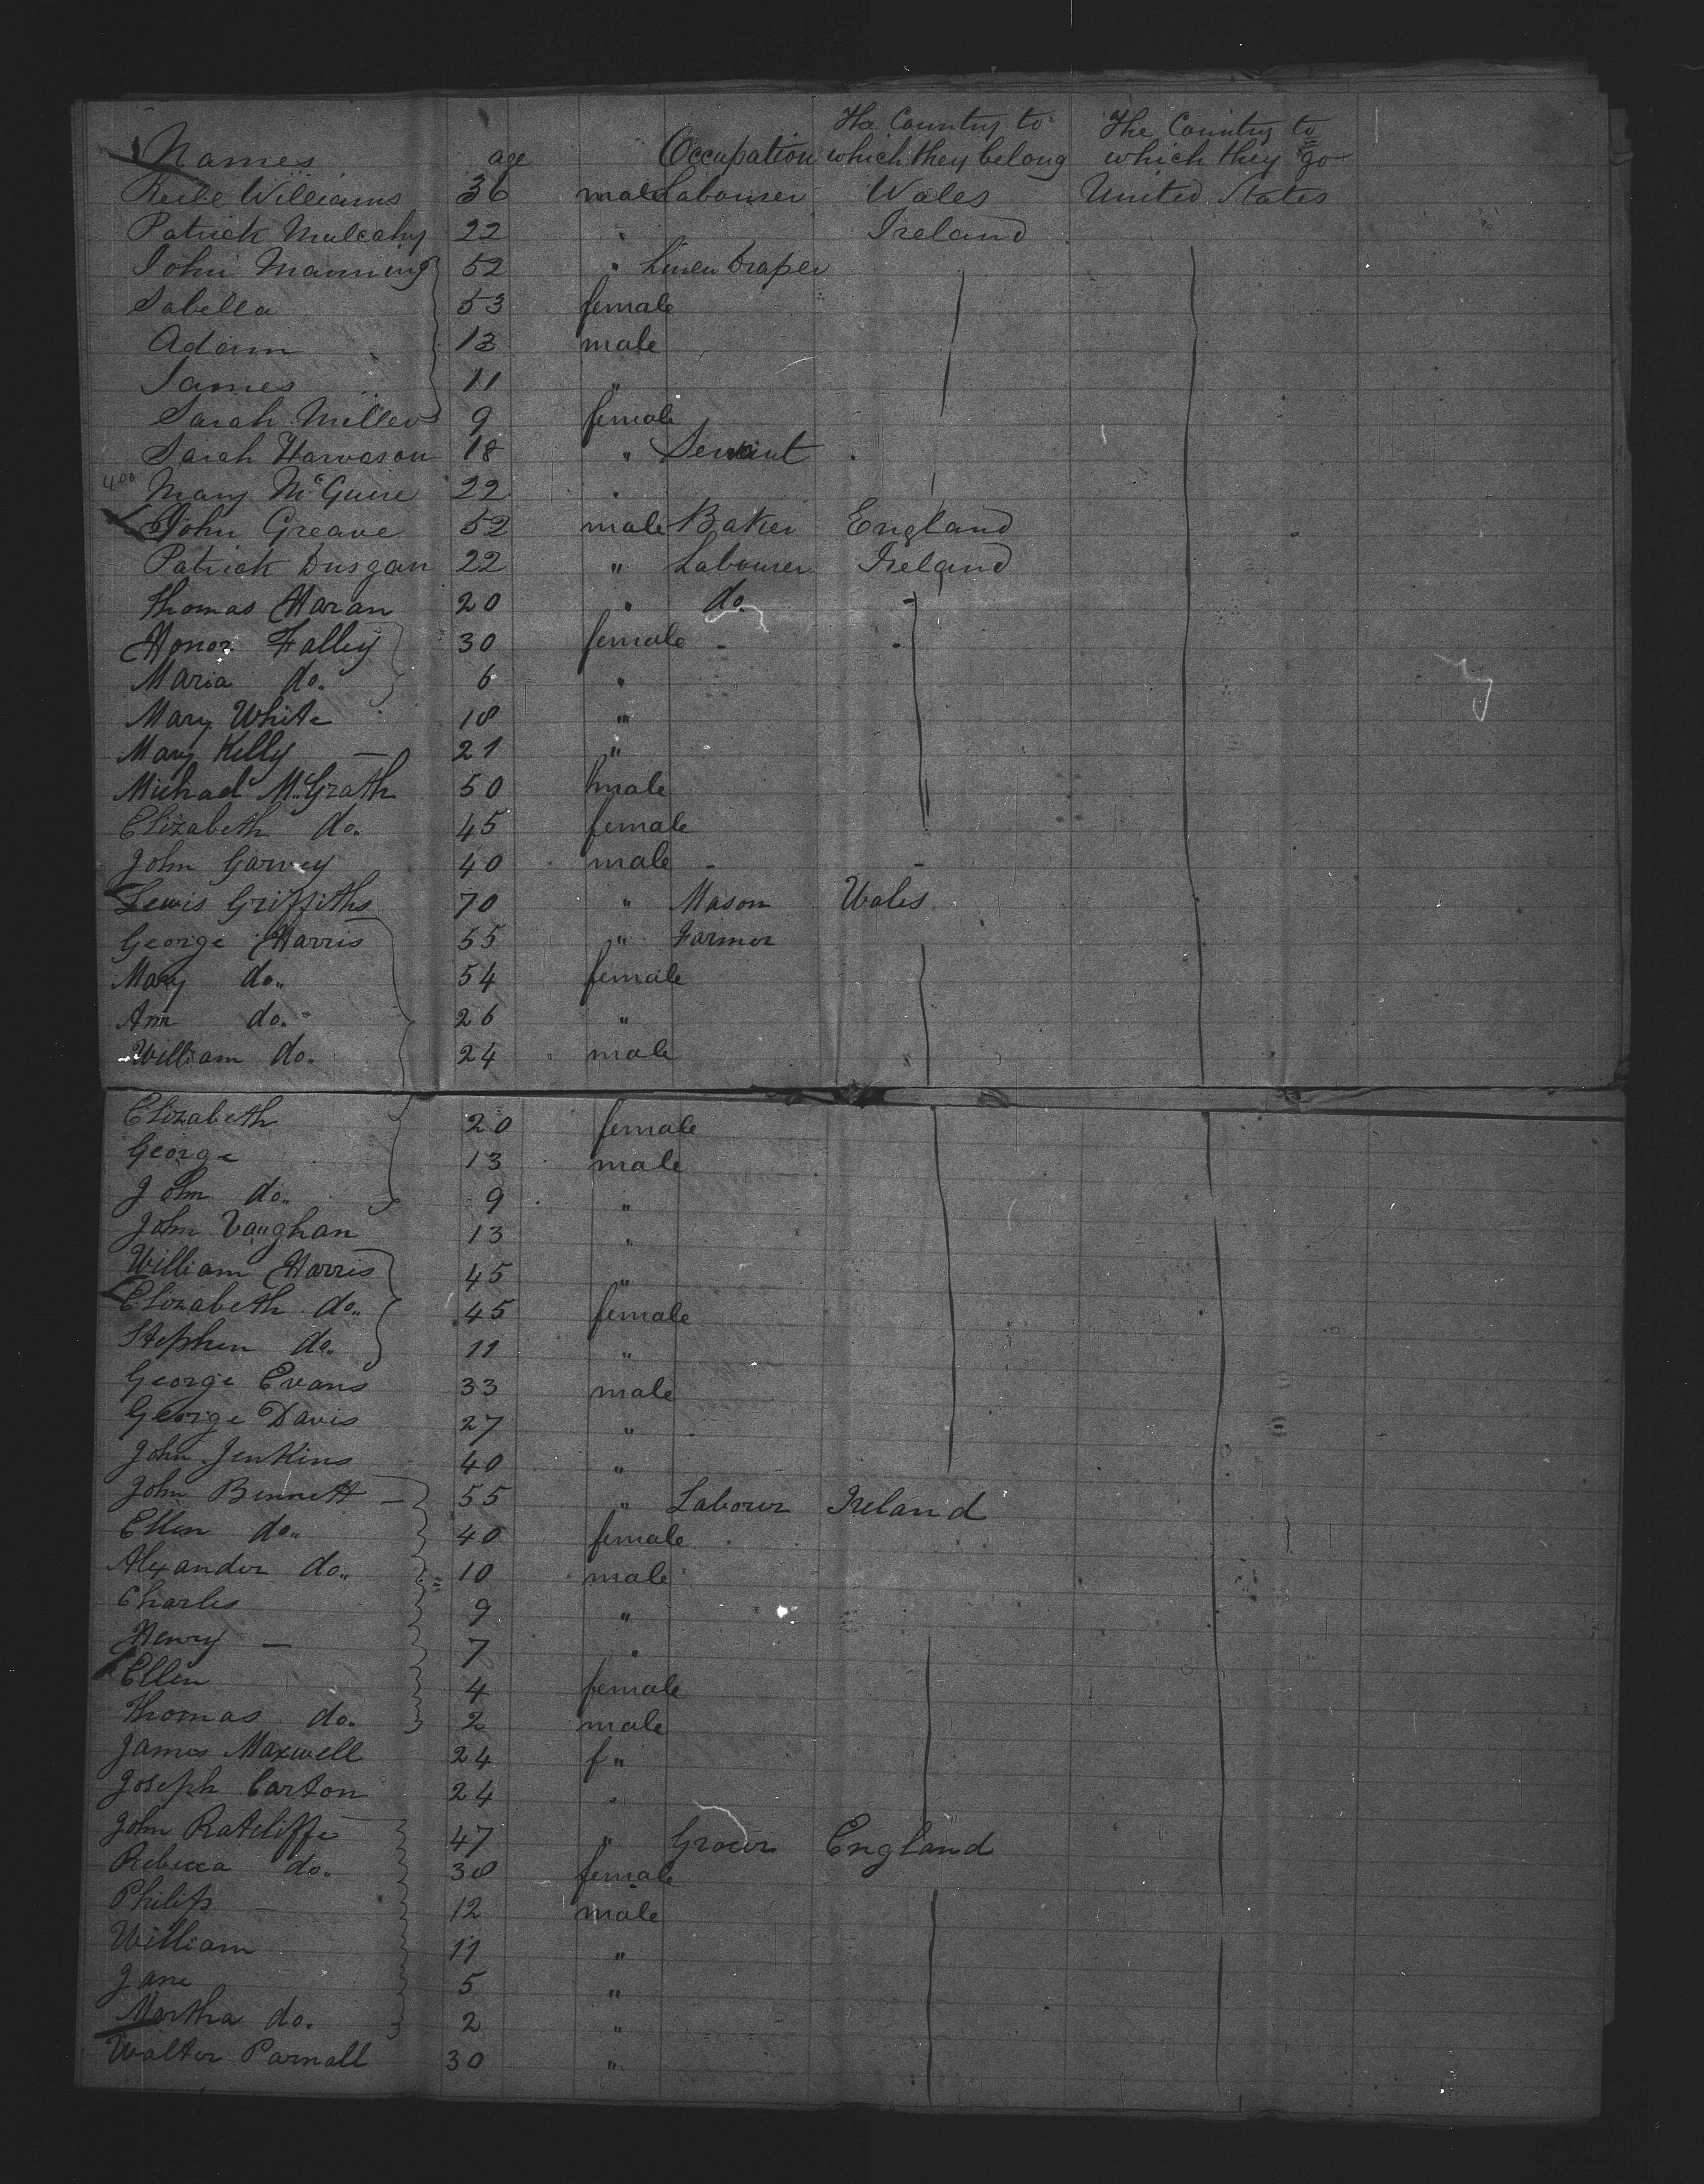 Names age Occupation The Country to which they belong The Country to which they go
Williams 36 male Labourer Wales United States
Patrick Mulcahy 22 " Ireland
John Manning 52 " Linen Draper
Isabella 53 female
Adam 13 male
James 11 "
Sarah Miller 9 female
Sarah 18 " Servant
400 Mary McGuire 22 "
John Greave 52 male Baker England
Patrick Dusgan 22 " Labourer Ireland
Thomas Haran 20 " do.
Honor Falley 30 female - -
Maria do. 6 "
Mary White 18 "
Mary Kelly — 21 "
Michael McGrath 50 male
Elizabeth do. 45 female
John Garvey 40 male - -
Lewis Griffiths 70 " Mason Wales
George Harris 55 " Farmer
Mary do. 54 female
Ann do. 26 "
William do. 24 male
Elizabeth 20 female
George 13 male
John do. 9 "
John Vaughan 13 "
William Harris 45 "
Elizabeth do. 45 female
Stephen do. 11 "
George Evans 33 male
George Davis 27 "
John Jenkins 40 "
John Bennett — 55 " Labourer Ireland
Ellen do. 40 female
Alexander do. 10 male
Charles 9 "
Henry — 7 "
Ellen 4 female
Thomas do. 2 male
James Maxwell 24 f "
Joseph Carton 24 "
John Ratcliffe 47 " Grocer England
Rebecca do. 30 female
Philip 12 male
William 11 "
Jane 5 "
Martha do. 2 "
Walter Parnall 30 "